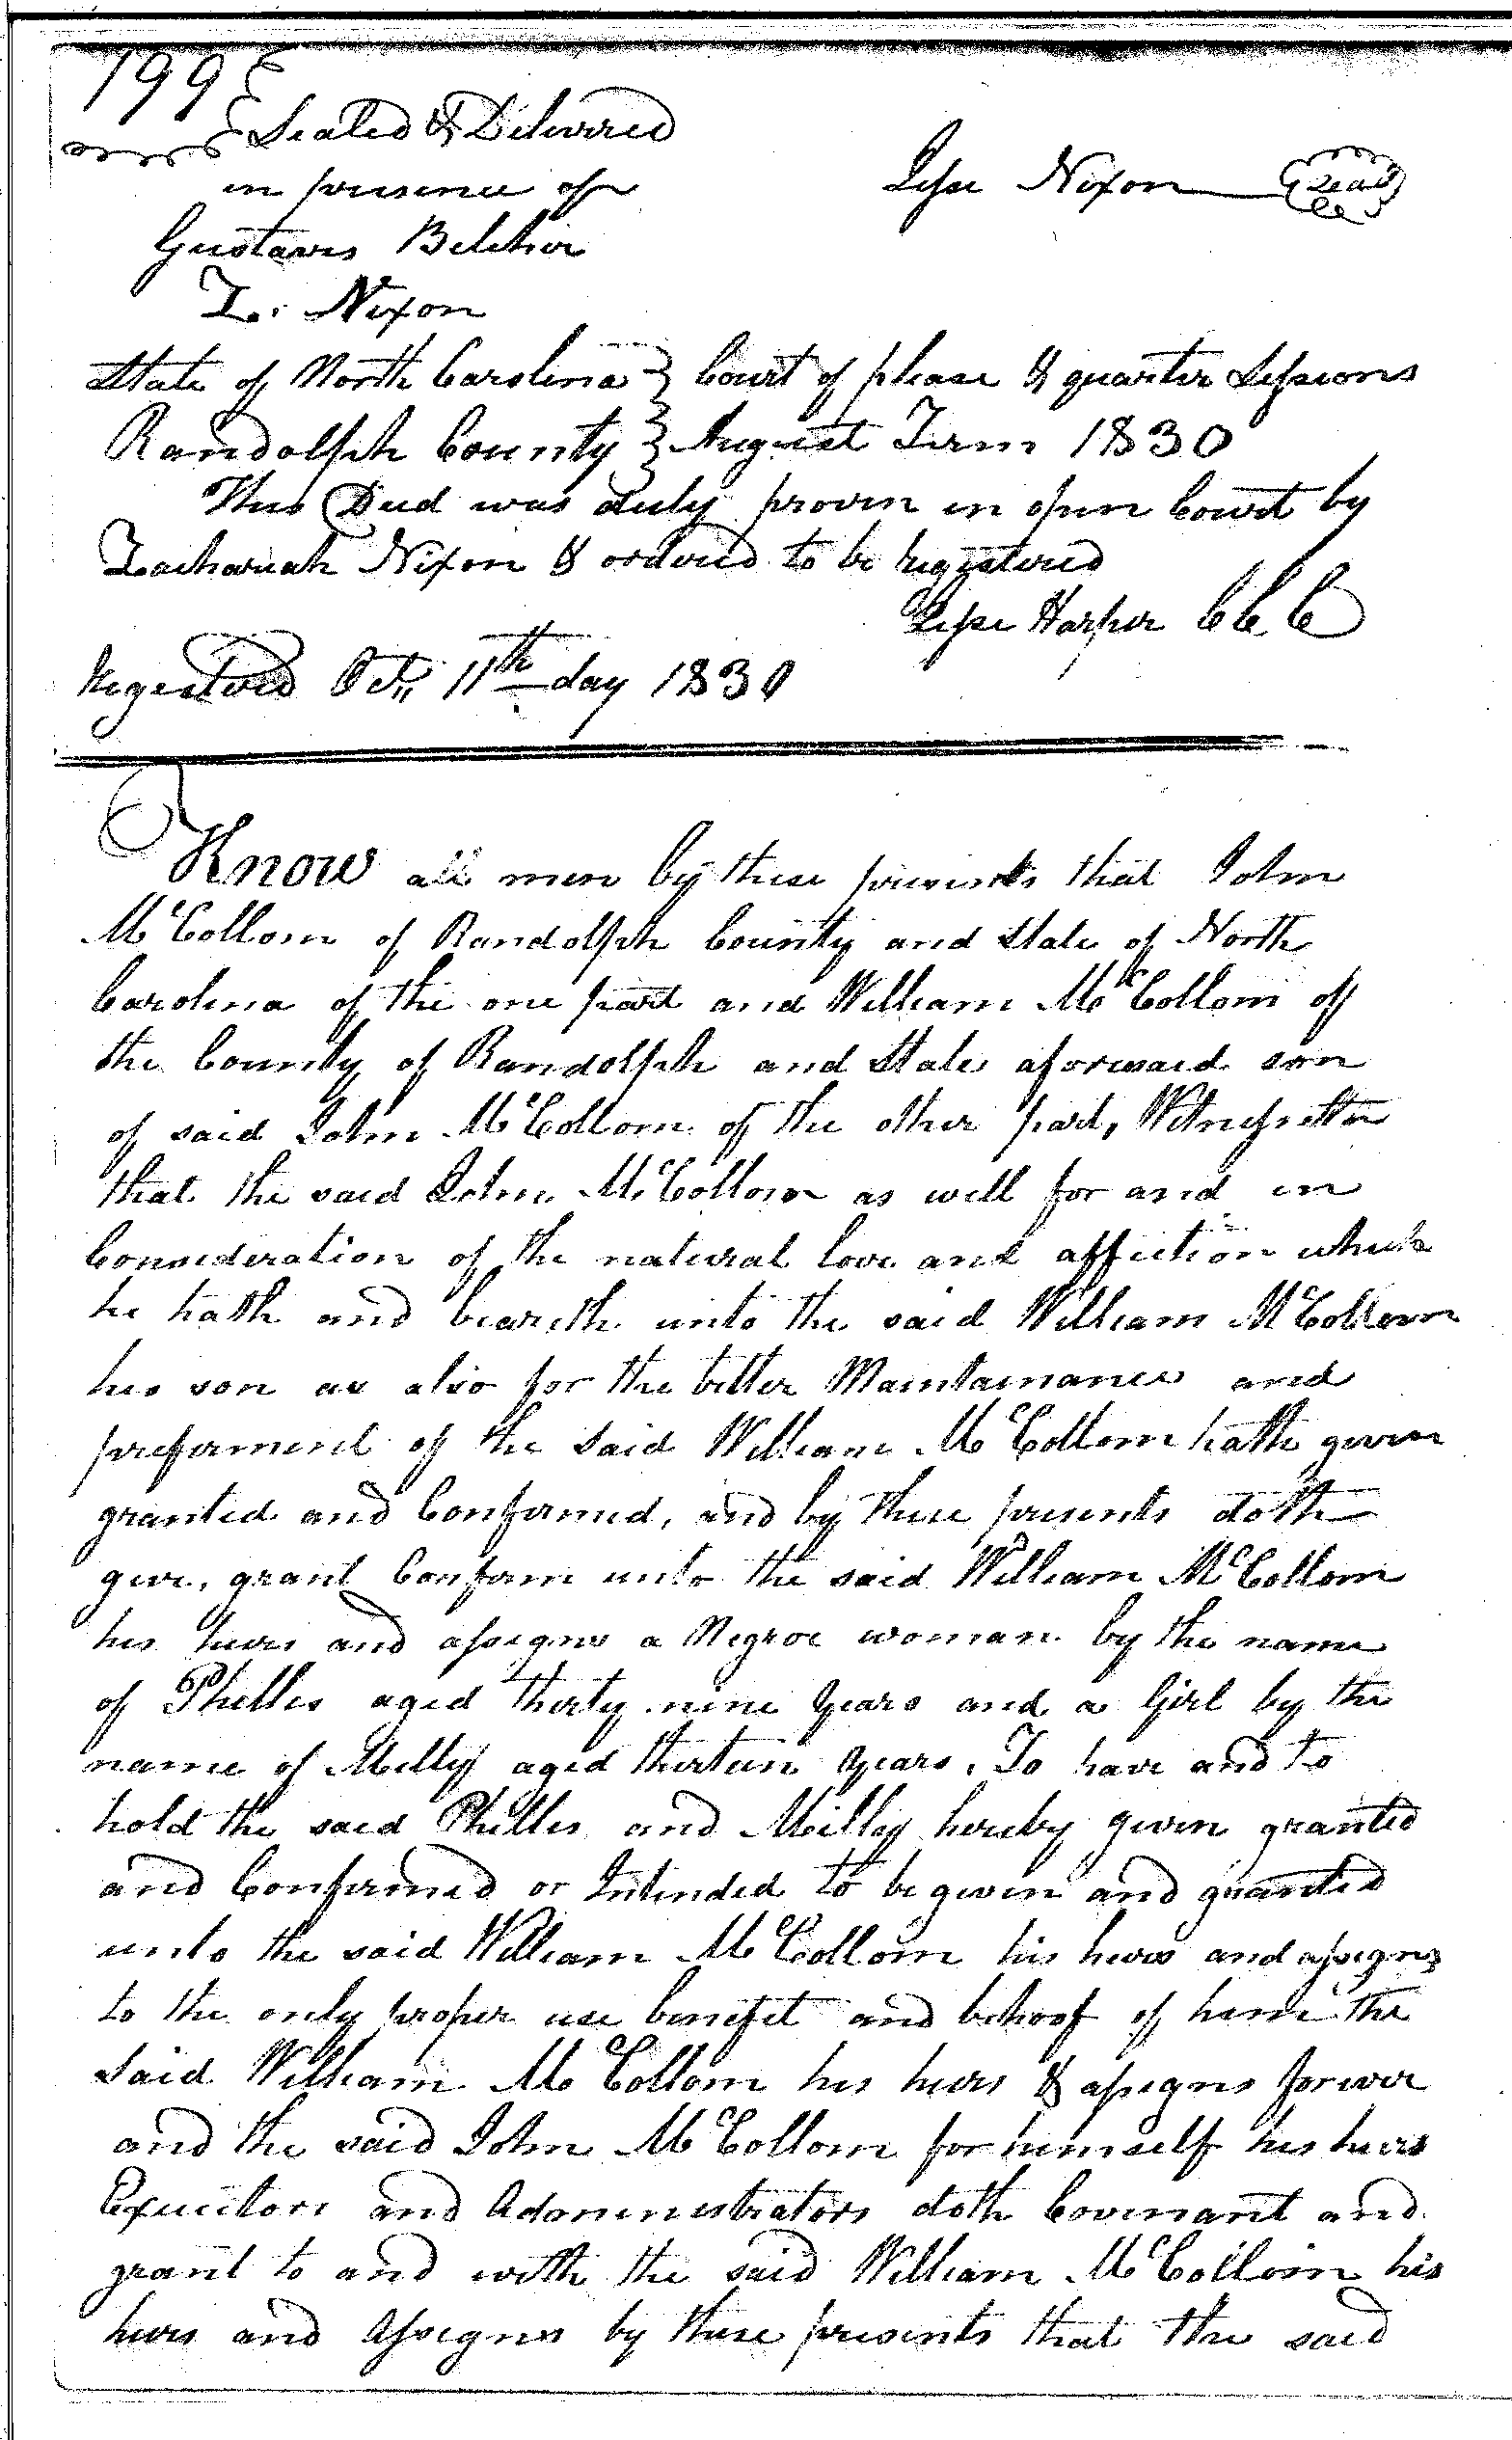 199
Sealed & Delivered
in presence of
Jesse Nixon Seal
Gustavis Belcher
Z. Nixon
State of North Carolina } Court of please & quarter Sessions
Randolph County } August Term 1830
This Deed was duly proven in open Court by
Zachariah Nixon & ordered to be registered
Jesse Harper C C C
Registered Oct. 11th day 1830
Know all men by these presents that John
McCollom of Randolph County and State of North
Carolina of the one part and William McCollom of
the County of Randolph and State aforesaid son
of said John McCollom of the other part, Witnesseth
that the said John McCollom as well for and in
Consideration of the natural love and affection which
he hath and beareth unto the said William McCollom
his son as also for the better Maintainance and
preferment of the said William McCollom hath given
granted and Confirmed, and by these presents doth
give, grant Confirm unto the said William McCollom
his heirs and assigns a Negroe woman by the name
of Phelles aged thirty nine years and a Girl by the
name of Milly aged thirteen years. To have and to
hold the said Phelles and Milley hereby given granted
and Confirmed or Intended to be given and granted
unto the said William McCollom his heirs and assigns
to the only proper use benefit and behoof of him the
said William McCollom his heirs & assigns forever
and the said John McCollom for himself his heirs
Executors and Administrators doth Covenant and
grant to and with the said William McCollom his
heirs and Assigns by these presents that the said